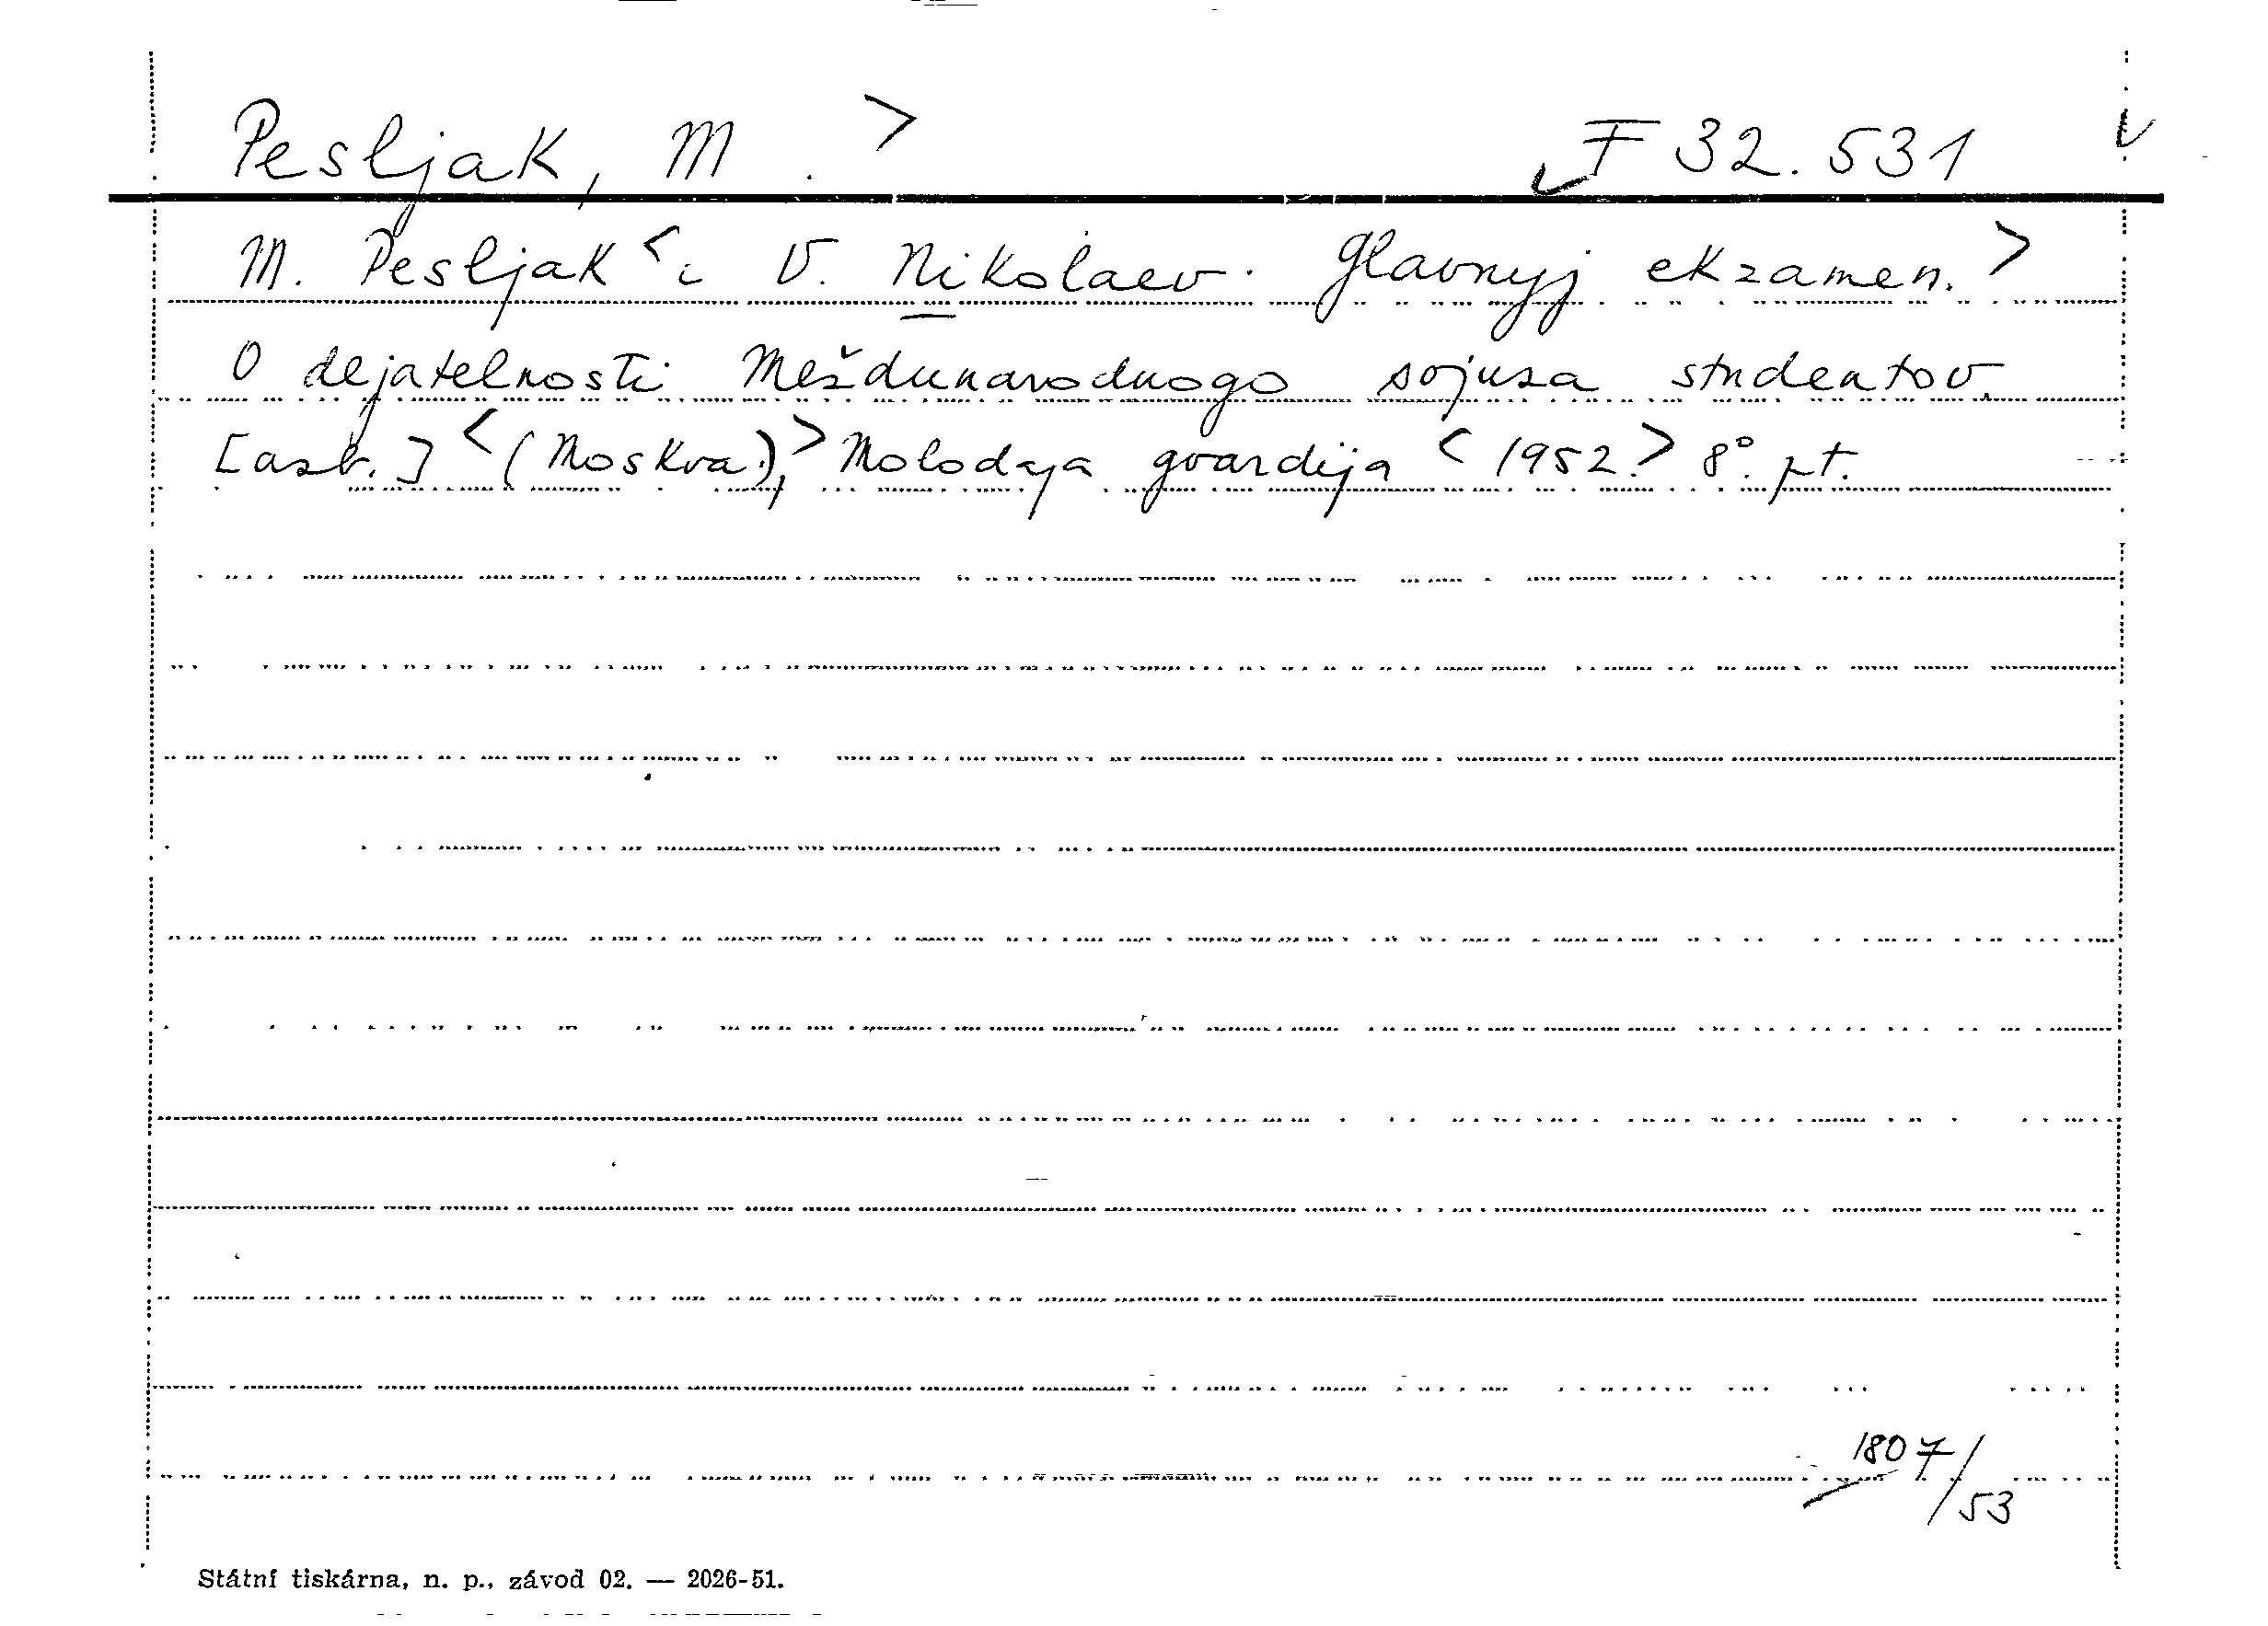 Pesljak, M. > F 32.531
M. Pesljak < i V. Nikolaev. Glavnyj ekzamen. >
O dejatelnosti Meždunarodnogo sojuza studentov.
[azb.] < (Moskva), > Molodaja gvardija < 1952. > 8°. pt.
1807/53
Státní tiskárna, n. p., závod 02. — 2026-51.